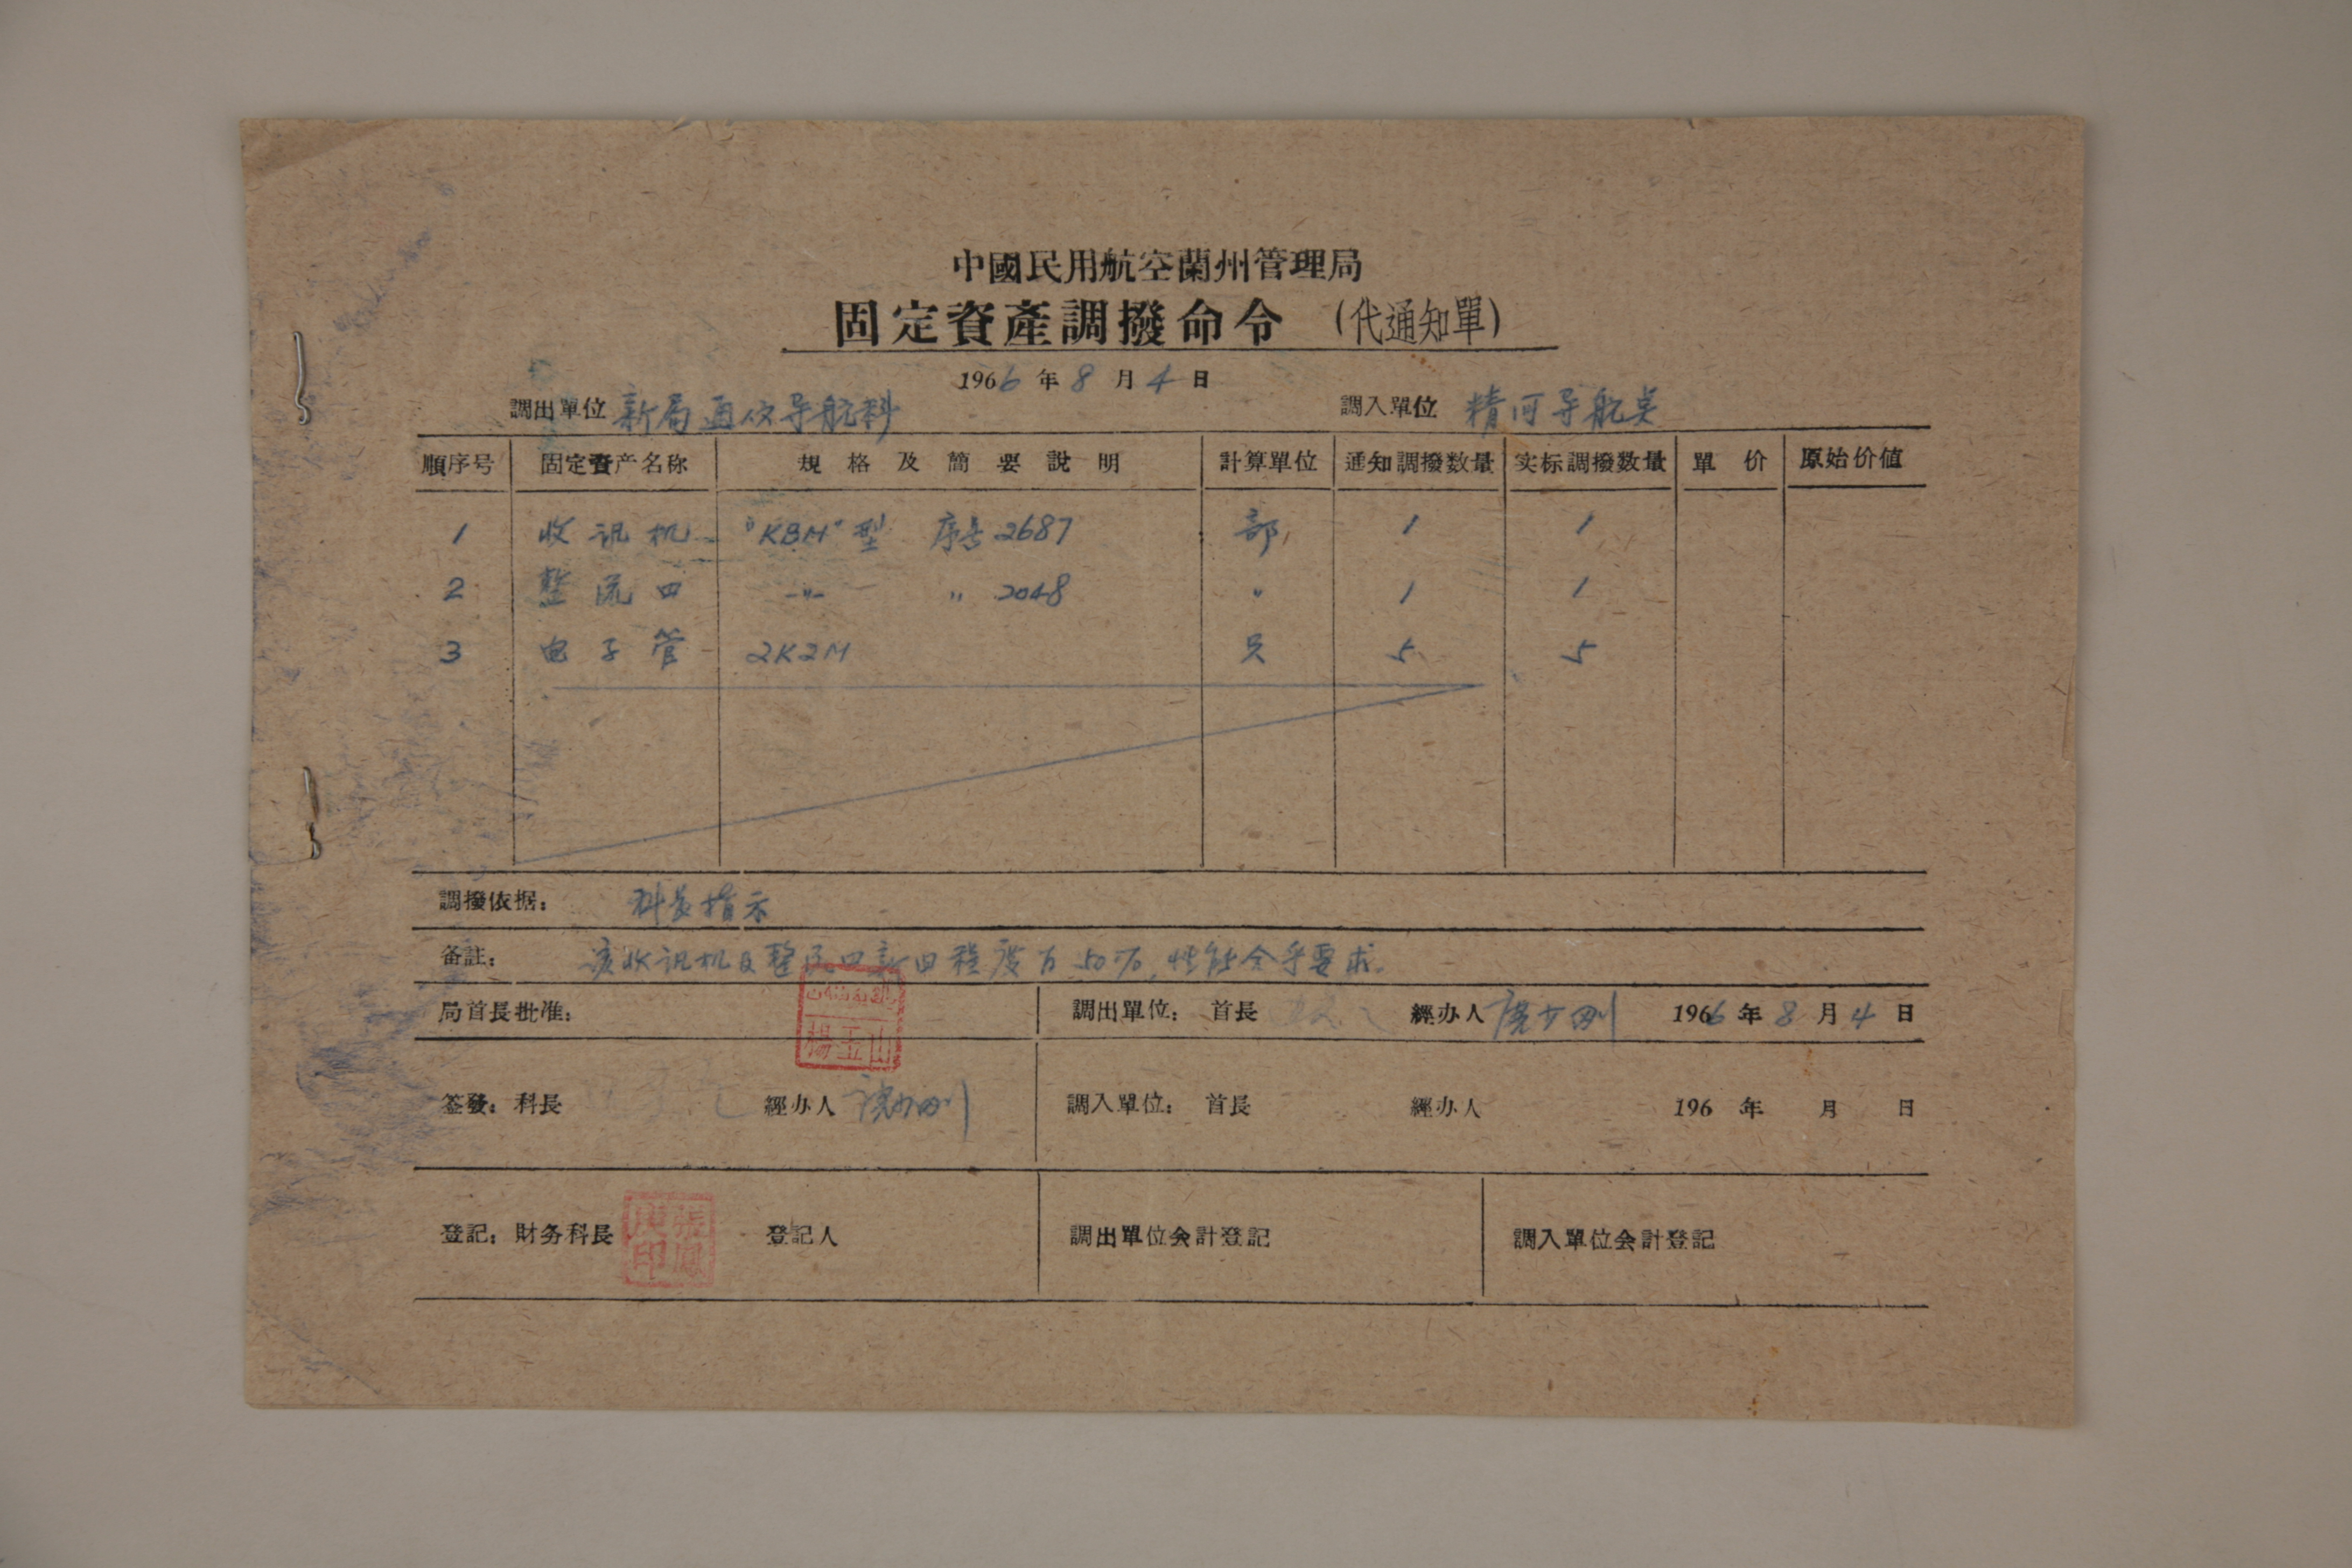 中國民用航空蘭州管理局
固定資產調撥命令 (代通知單)
1966 年 8 月 4 日
調出單位 新局通信导航科 調入單位 精河导航台
順序号 固定資产名称 規格及簡要說明 計算單位 通知調撥数量 实标調撥数量 單价 原始价値
1 收讯机 "KBM"型 序号2687 部 1 1
2 整流四 -〃- 〃 2048 〃 1 1
3 电子管 2K2M 只 5 5
調撥依据: 科长指示
备註: 该收讯机及整流四新旧程度为50%,性能合乎要求.
局首長批准: 楊玉山 調出單位: 首長 經办人 1966 年 8 月 4 日
簽發: 科長 經办人 調入單位: 首長 經办人 196 年 月 日
登記: 財务科長 登記人 調出單位会計登記 調入單位会計登記